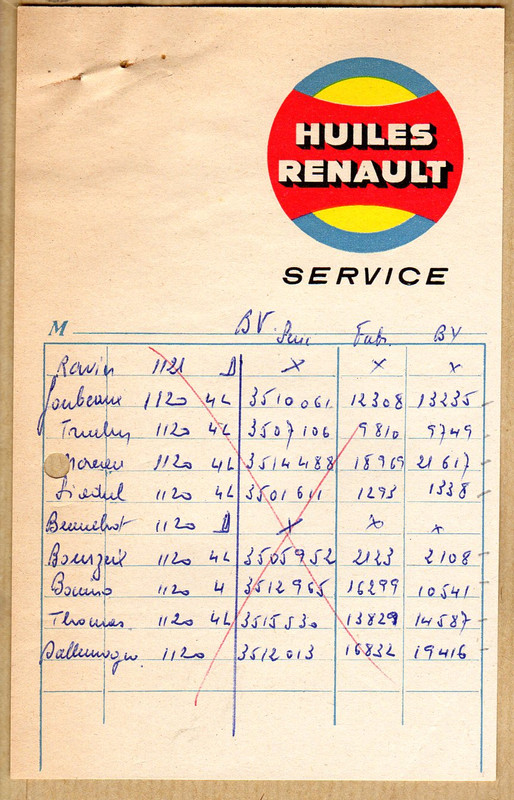 HUILES
RENAULT
SERVICE
M BV Serie Fab. BV
Ravier 1121 D X X X
1120 4L 3510061 12308 13235
1120 4L 3507106 9810 9749
1120 4L 3514488 18969 21617
1120 4L 3501611 1293 1338
1120 D X X X
1120 4L 3505952 2123 2108
1120 4 3512965 16299 10541
Thomas 1120 4L 3515530 13829 14587
1120 3512013 16832 19416